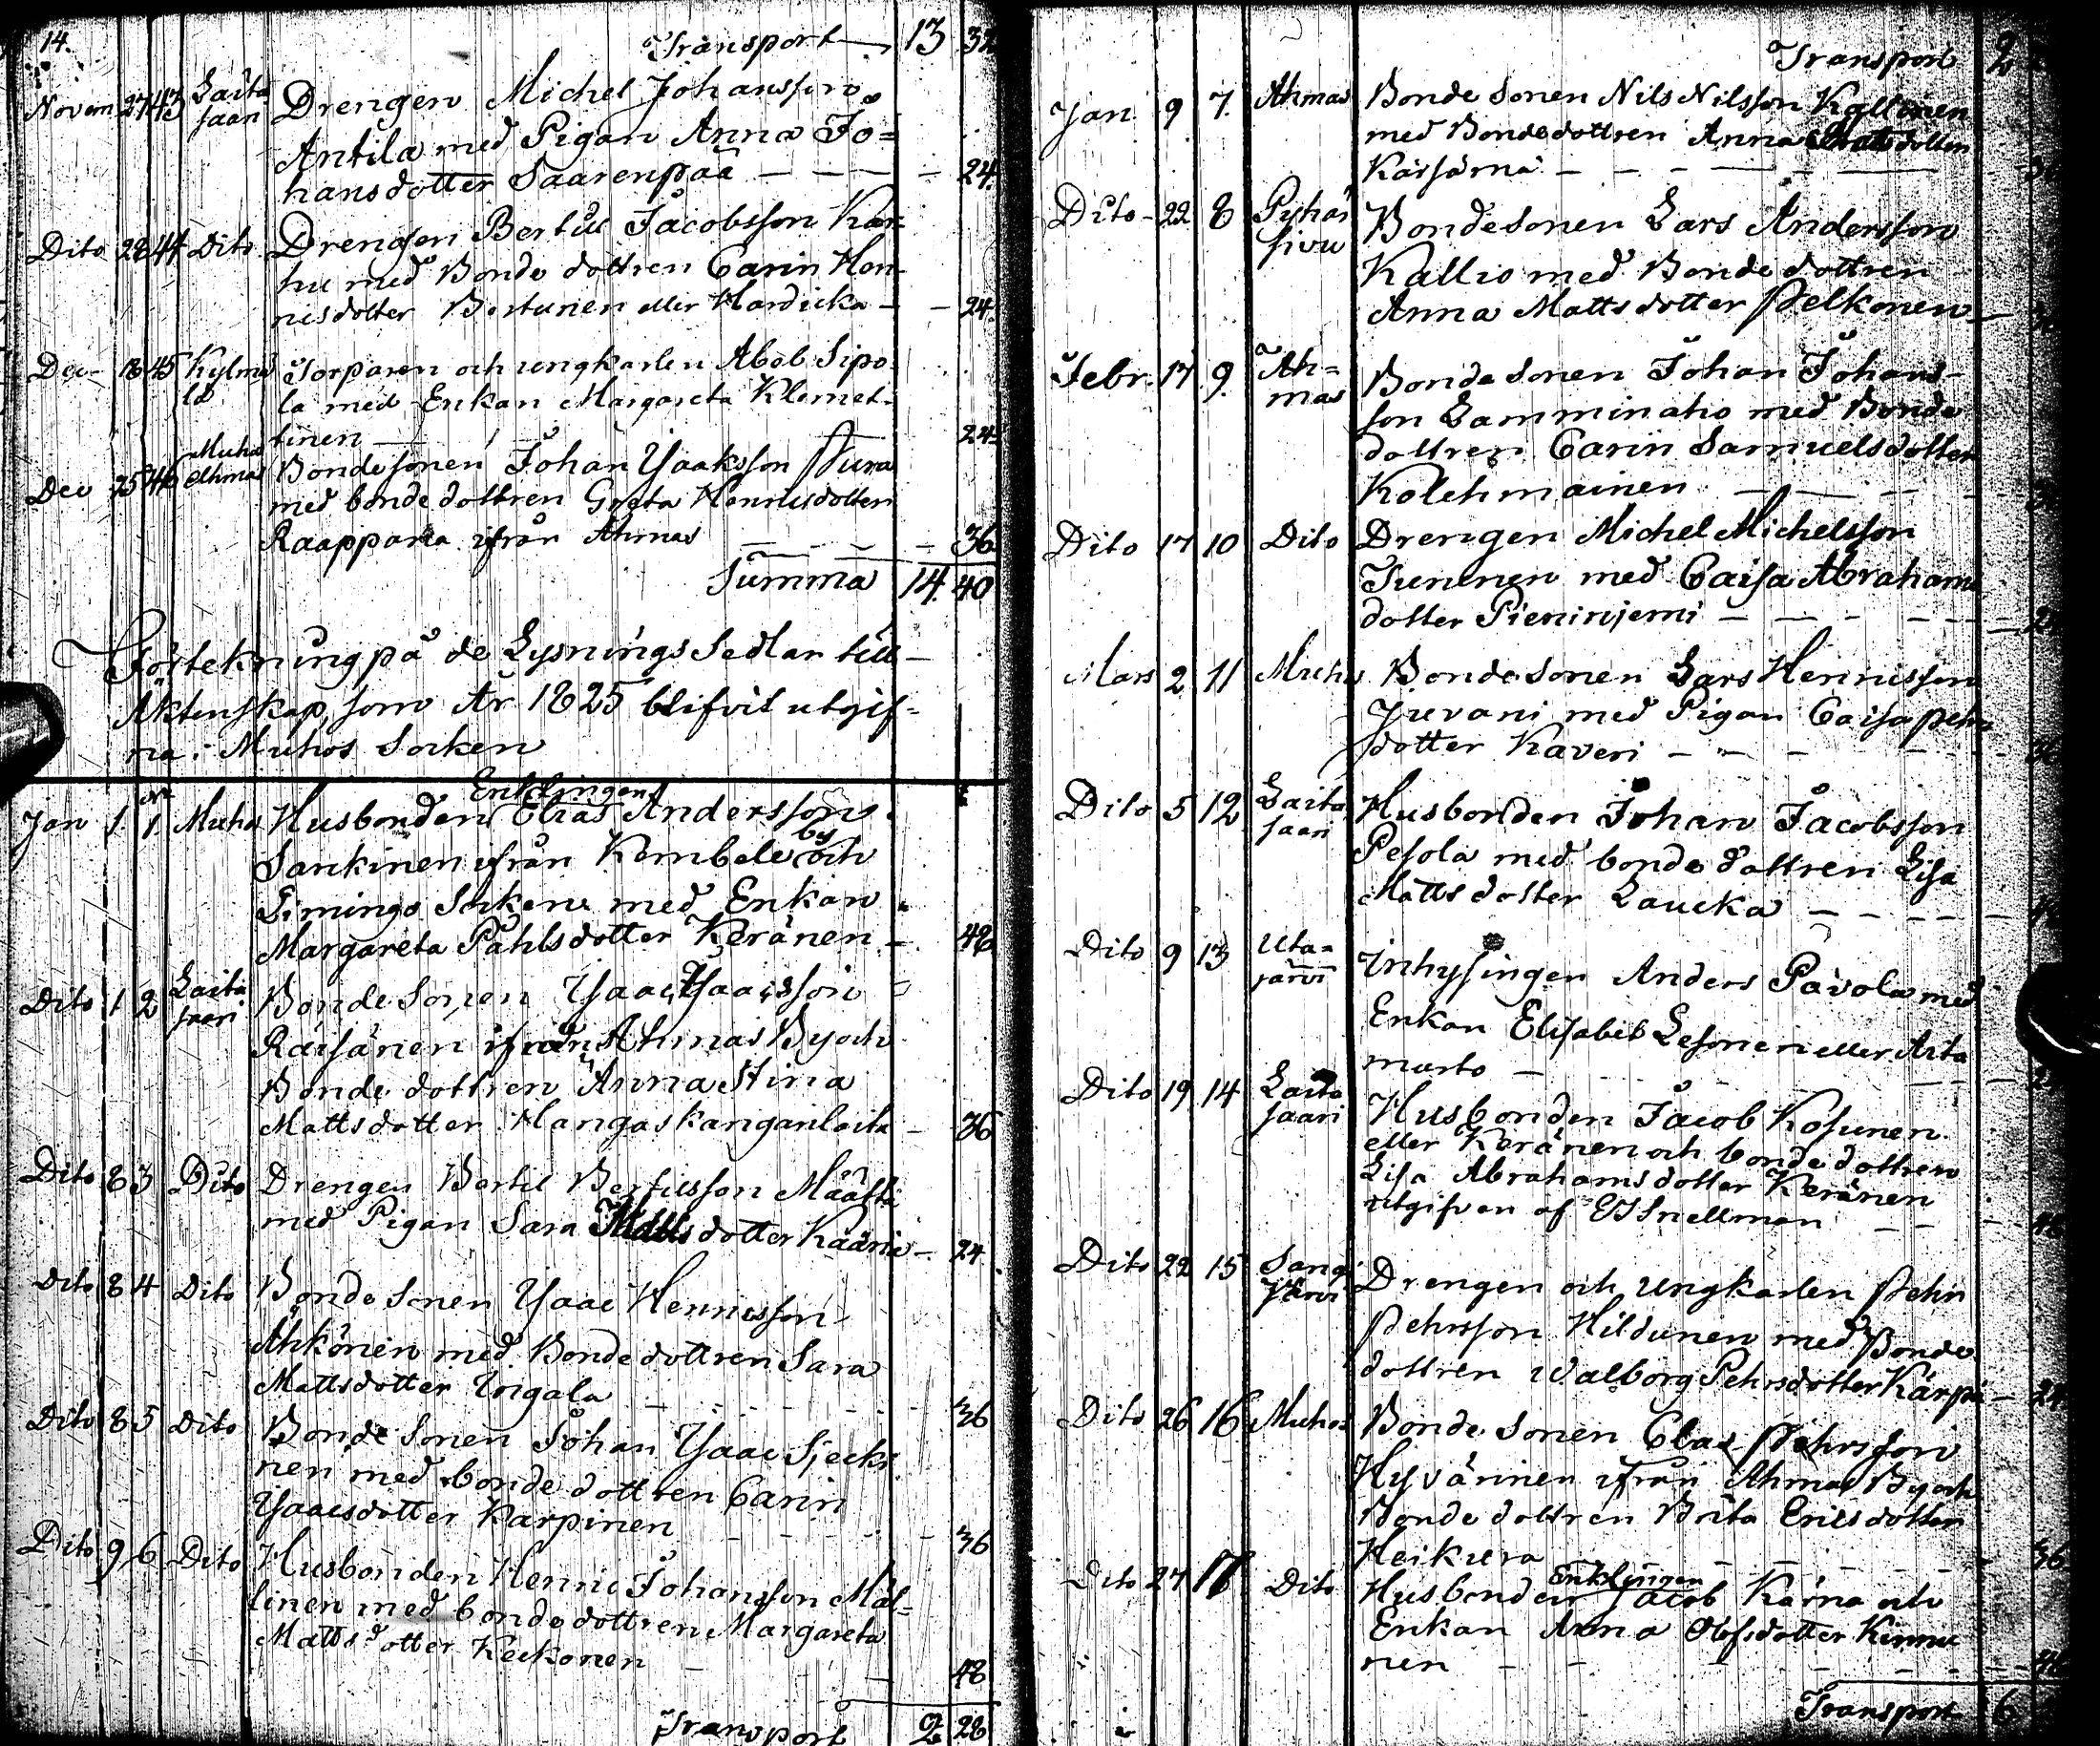 14.
Transport 13 32
Novem 27 43 Laitasaari Drengen Michel Johansson
Antila med Pigan Anna Jo=
hansdotter Saarenpää — — — 24.
Dito 28 44 Dito Drengen Bertil Jacobsson Kar-
hu med Bonde dottren Carin Hen-
nesdotter Bertunen eller Hardicka — 24.
Dec 18 45 Kylmälä Torparen och ungkarlen Abel Sipo
la med Enkan Margareta Klemet-
tinen — 24
Dec 25 46 Muhos Ahmas Bondesonen Johan Ysaaksson Pura
med bonde dottren Greta Hennisdotter
Raappana ifrån Ahmas — 36
Summa 14. 40
Förtekning på de Lysnings Sedlar till
Äktenskap, som År 1825 blifvit utgif-
na i Muhos Socken
Enklingen
Jan 1 1 Muhos Husbonden Elias Andersson
Sankinen ifrån Kembele by och
Limingo Socken med Enkan
Margareta Påhlsdotter Keränen — 48
Dito 1 2 Laitasaari Bonde Sonen Ysaac Ysaacsson
Räisänen ifrån Ahmas By och
Bonde dottren Anna Stina
Mattsdotter Hangaskanganlaita — 36
Dito 8 3 Dito Drengen Bertil Bertilsson Määttä
med Pigan Sara Mattsdotter Kääriä — 24
Dito 8 4 Dito Bonde Sonen Ysaac Hennisson
Ahkonen med Bonde dottren Sara
Mattsdotter Ingala — 36
Dito 8 5 Dito Bonde Sonen Johan Ysaac
nen med bonde dottren Carin
Ysaacsdotter Karpinen — 36
Dito 9 6 Dito Husbonden Henric Johansson Mäl=
linen med bonde dottren Margareta
Mattsdotter Keckonen — 48
Transport 2 28
Transport 2
Jan 9 7. Ahmas Bonde Sonen Nils Nilsson Kallonen
med Bondedottren Anna Matsdotter
Kärsämä — —
Dito 22 8 Pyhäsivu Bondesonen Lars Andersson
Kallio med Bonde dottren
Anna Mattsdotter Pelkonen —
Febr. 17 9. Ah=mas Bonde Sonen Johan Johans-
son Lamminaho med Bonde
dottren Carin Samuelsdotter
Kolehmainen —
Dito 17 10 Dito Drengen Michel Michelsson
Junnnen med Caisa Abrahams
dotter Pieniniemi —
Mars 2 11 Muhos Bonde Sonen Lars Hennisson
Juvani med Pigan Caisa Pehrs
dotter Kaveri —
Dito 5 12 Laitasaari Husbonden Johan Jacobsson
Pesola med bonde dottren Lisa
Mattsdotter Laucka —
Dito 9 13 Uta=järvi Inhysingen Anders Pävola med
Enkan Elisabet Lesonen eller Arta
marto —
Dito 19 14 Laitasaari Husbonden Jacob Kosunen
eller Keränen och bonde dottren
Lisa Abrahamsdotter Keränen
utgifven af EJ Snellman —
Dito 22 15 Sangijärvi Drengen och Ungkarlen Pehr
Pehrsson Hildunen med Bonde
dottren Walborg Pehrsdotter Kärpä — 24
Dito 26 16 Muhos Bonde Sonen Clas Pehrsson
Hyvärinen ifrån Ahmas By och
Bonde dottren Brita Ericsdotter
Heikura — 36
Enklingen
Dito 27 17 Dito Husbonden Jacob Kärnä och
Enkan Anna Olofsdotter Kinnu
nen — — 48
Transport 6